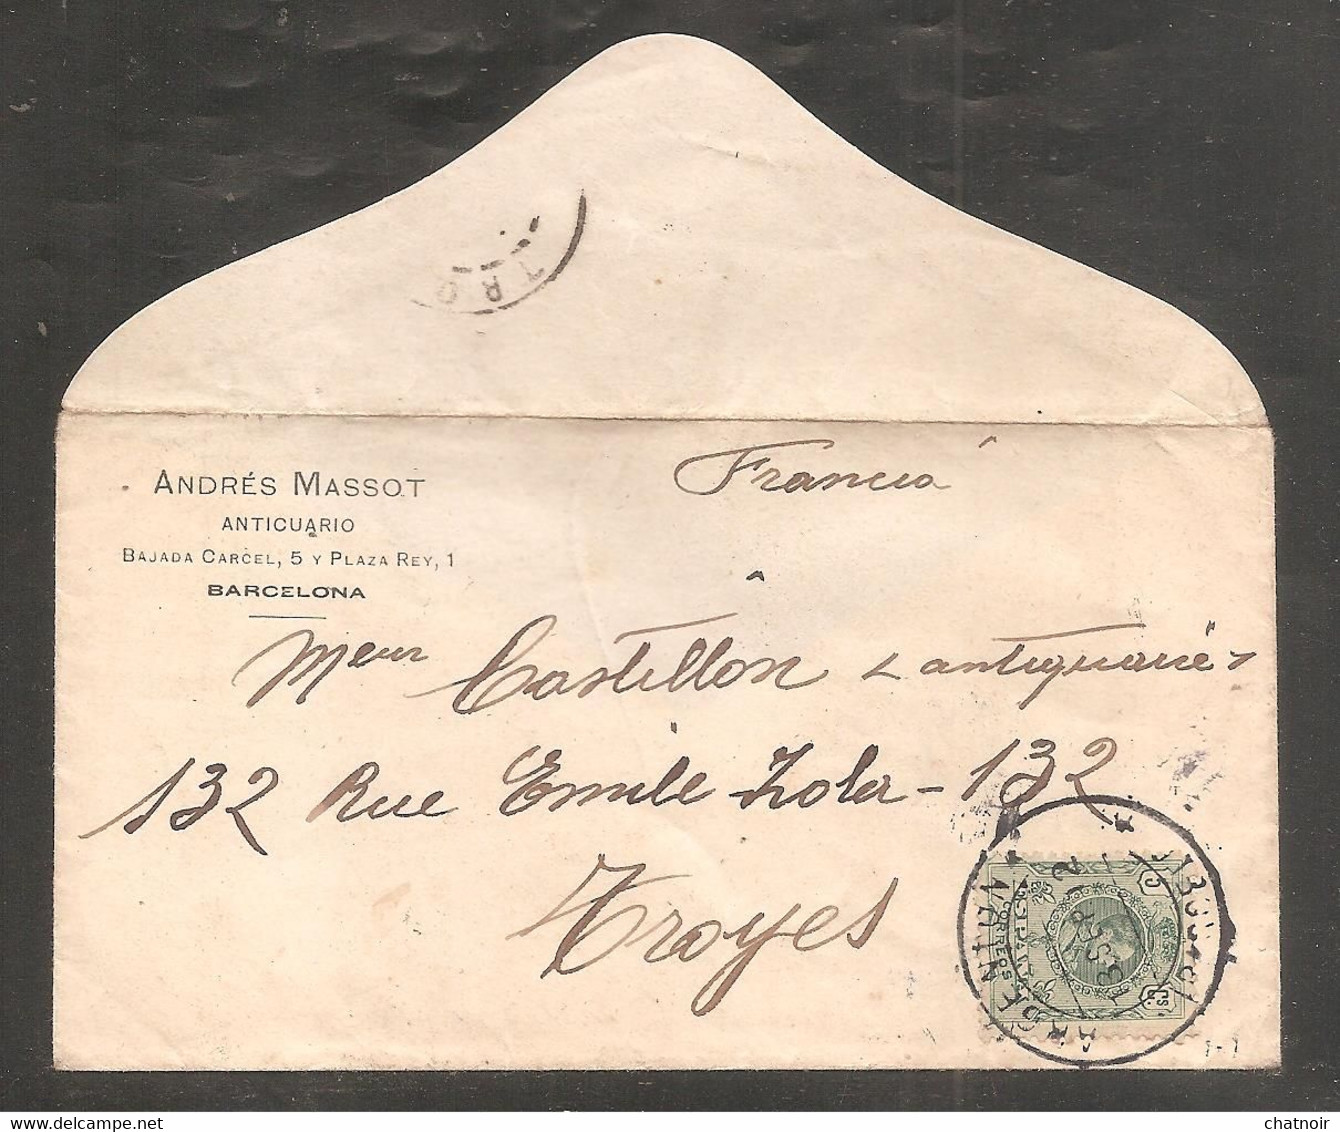 TRO
ANDRÉS MASSOT
ANTICUARIO
BAJADA CARCEL, 5 Y PLAZA REY, 1
BARCELONA
Francia
Meurs Castillon antiquaire
132 Rue Emile Zola - 132
Troyes
CORREOS
ESPAÑA
1-1
delcampe.net
chatnoir